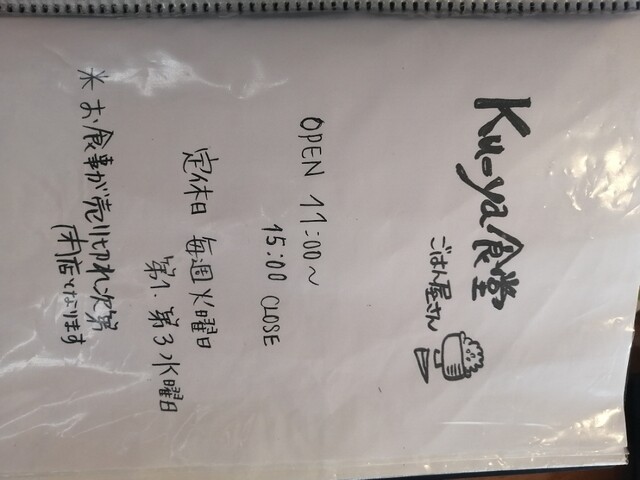 Ku-ya食堂
ごはん屋さん
OPEN 11:00〜
15:00 CLOSE
定休日 毎週火曜日
第1.第3水曜日
＊お食事が売り切れ次第
閉店となります